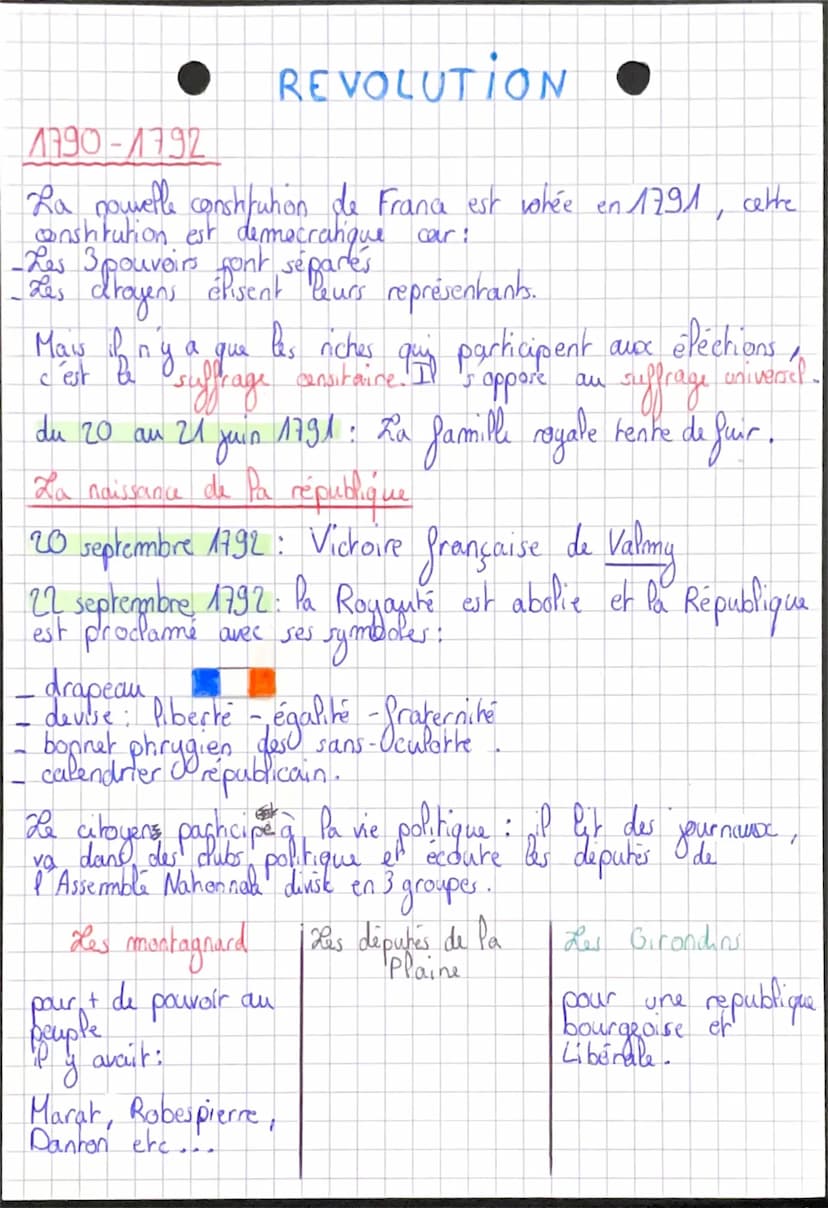 REVOLUTION
1790-1792
La nouvelle constitution de France est votée en 1791, cette
constitution est democratique car:
-Les 3 pouvoirs sont séparés
-Les citoyens élisent leurs représentants.
Mais il n'y a que les riches qui participent aux éléctions,
c'est le suffrage censitaire. Il s'oppose au suffrage universel.
du 20 au 21 juin 1791: La famille royale tente de fuir.
La naissance de la république
20 septembre 1792: Victoire française de Valmy
22 septembre 1792: la Royauté est abolie et la République
est proclamé avec ses symboles:
- drapeau
- devise: liberté - égalité - fraternité
- bonnet phrygien des sans-culotte.
- calendrier républicain.
Le citoyens participe à la vie politique: il lit des journaux,
va dans des clubs politique et écoute les députés de
l'Assemblé Nationnale divisé en 3 groupes.
Les montagnard
pour + de pouvoir au
peuple
il y avait:
Marat, Robespierre,
Danton etc...
Les députés de la
Plaine
Les Girondins
pour une republique
bourgeoise et
Libérale.